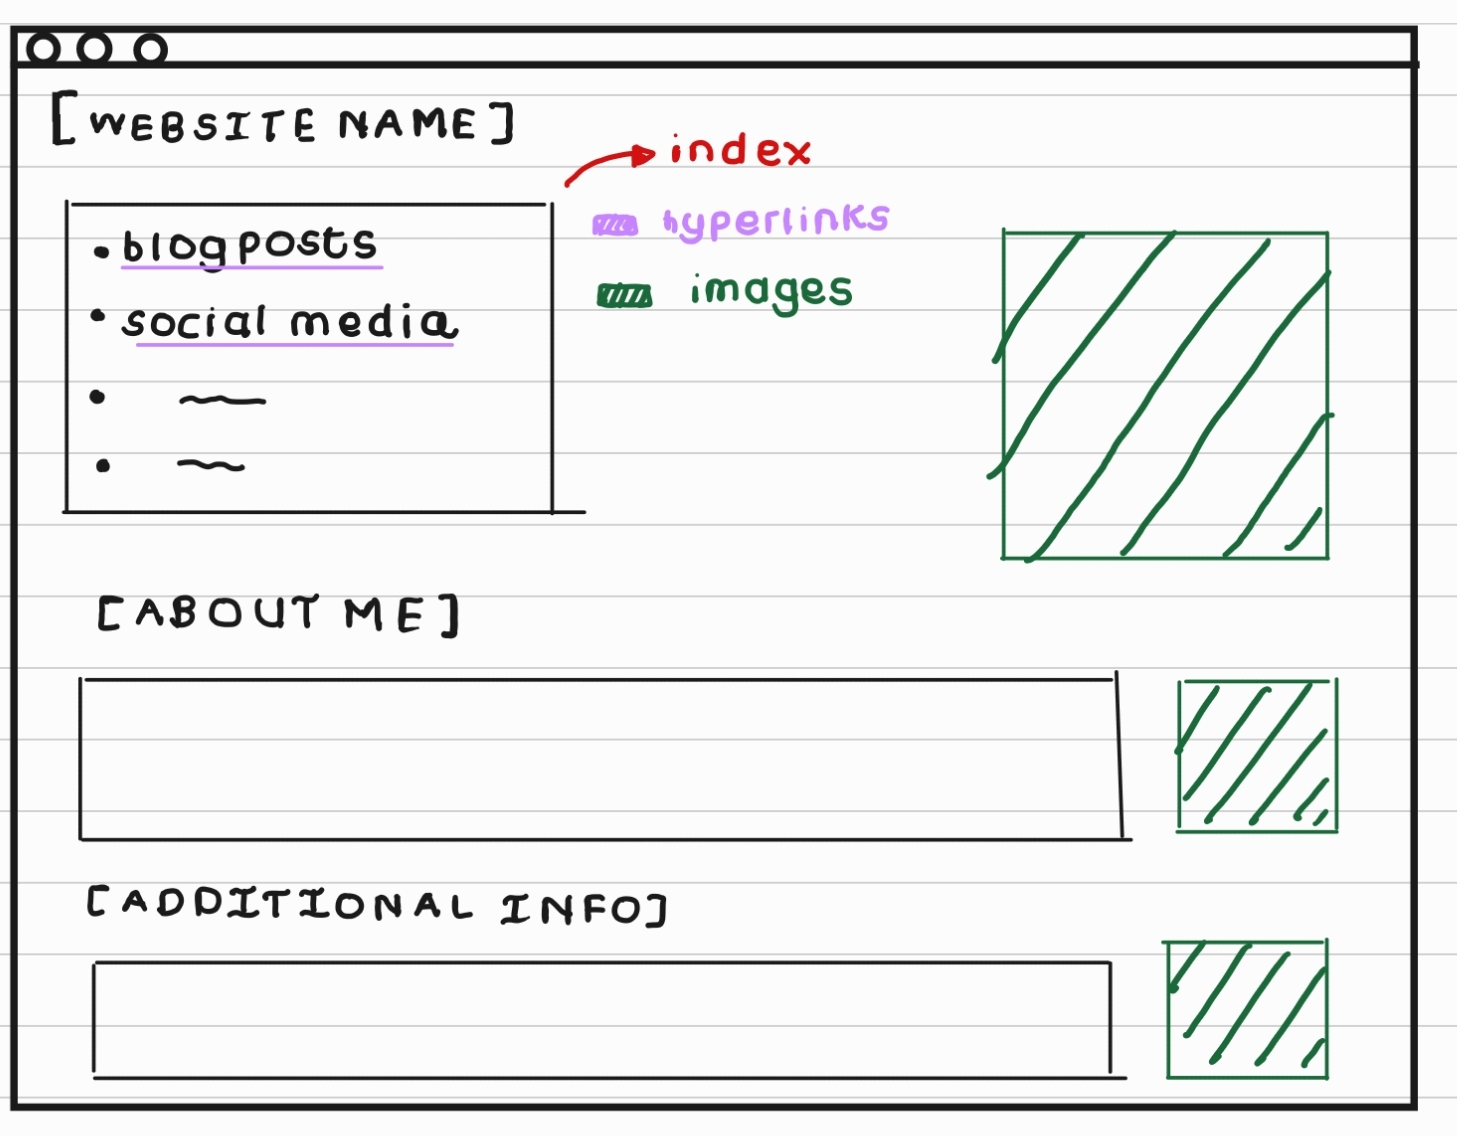 [WEBSITE NAME]
index
hyperlinks
images
• blog posts
• social media
•
•
[ABOUT ME]
[ADDITIONAL INFO]